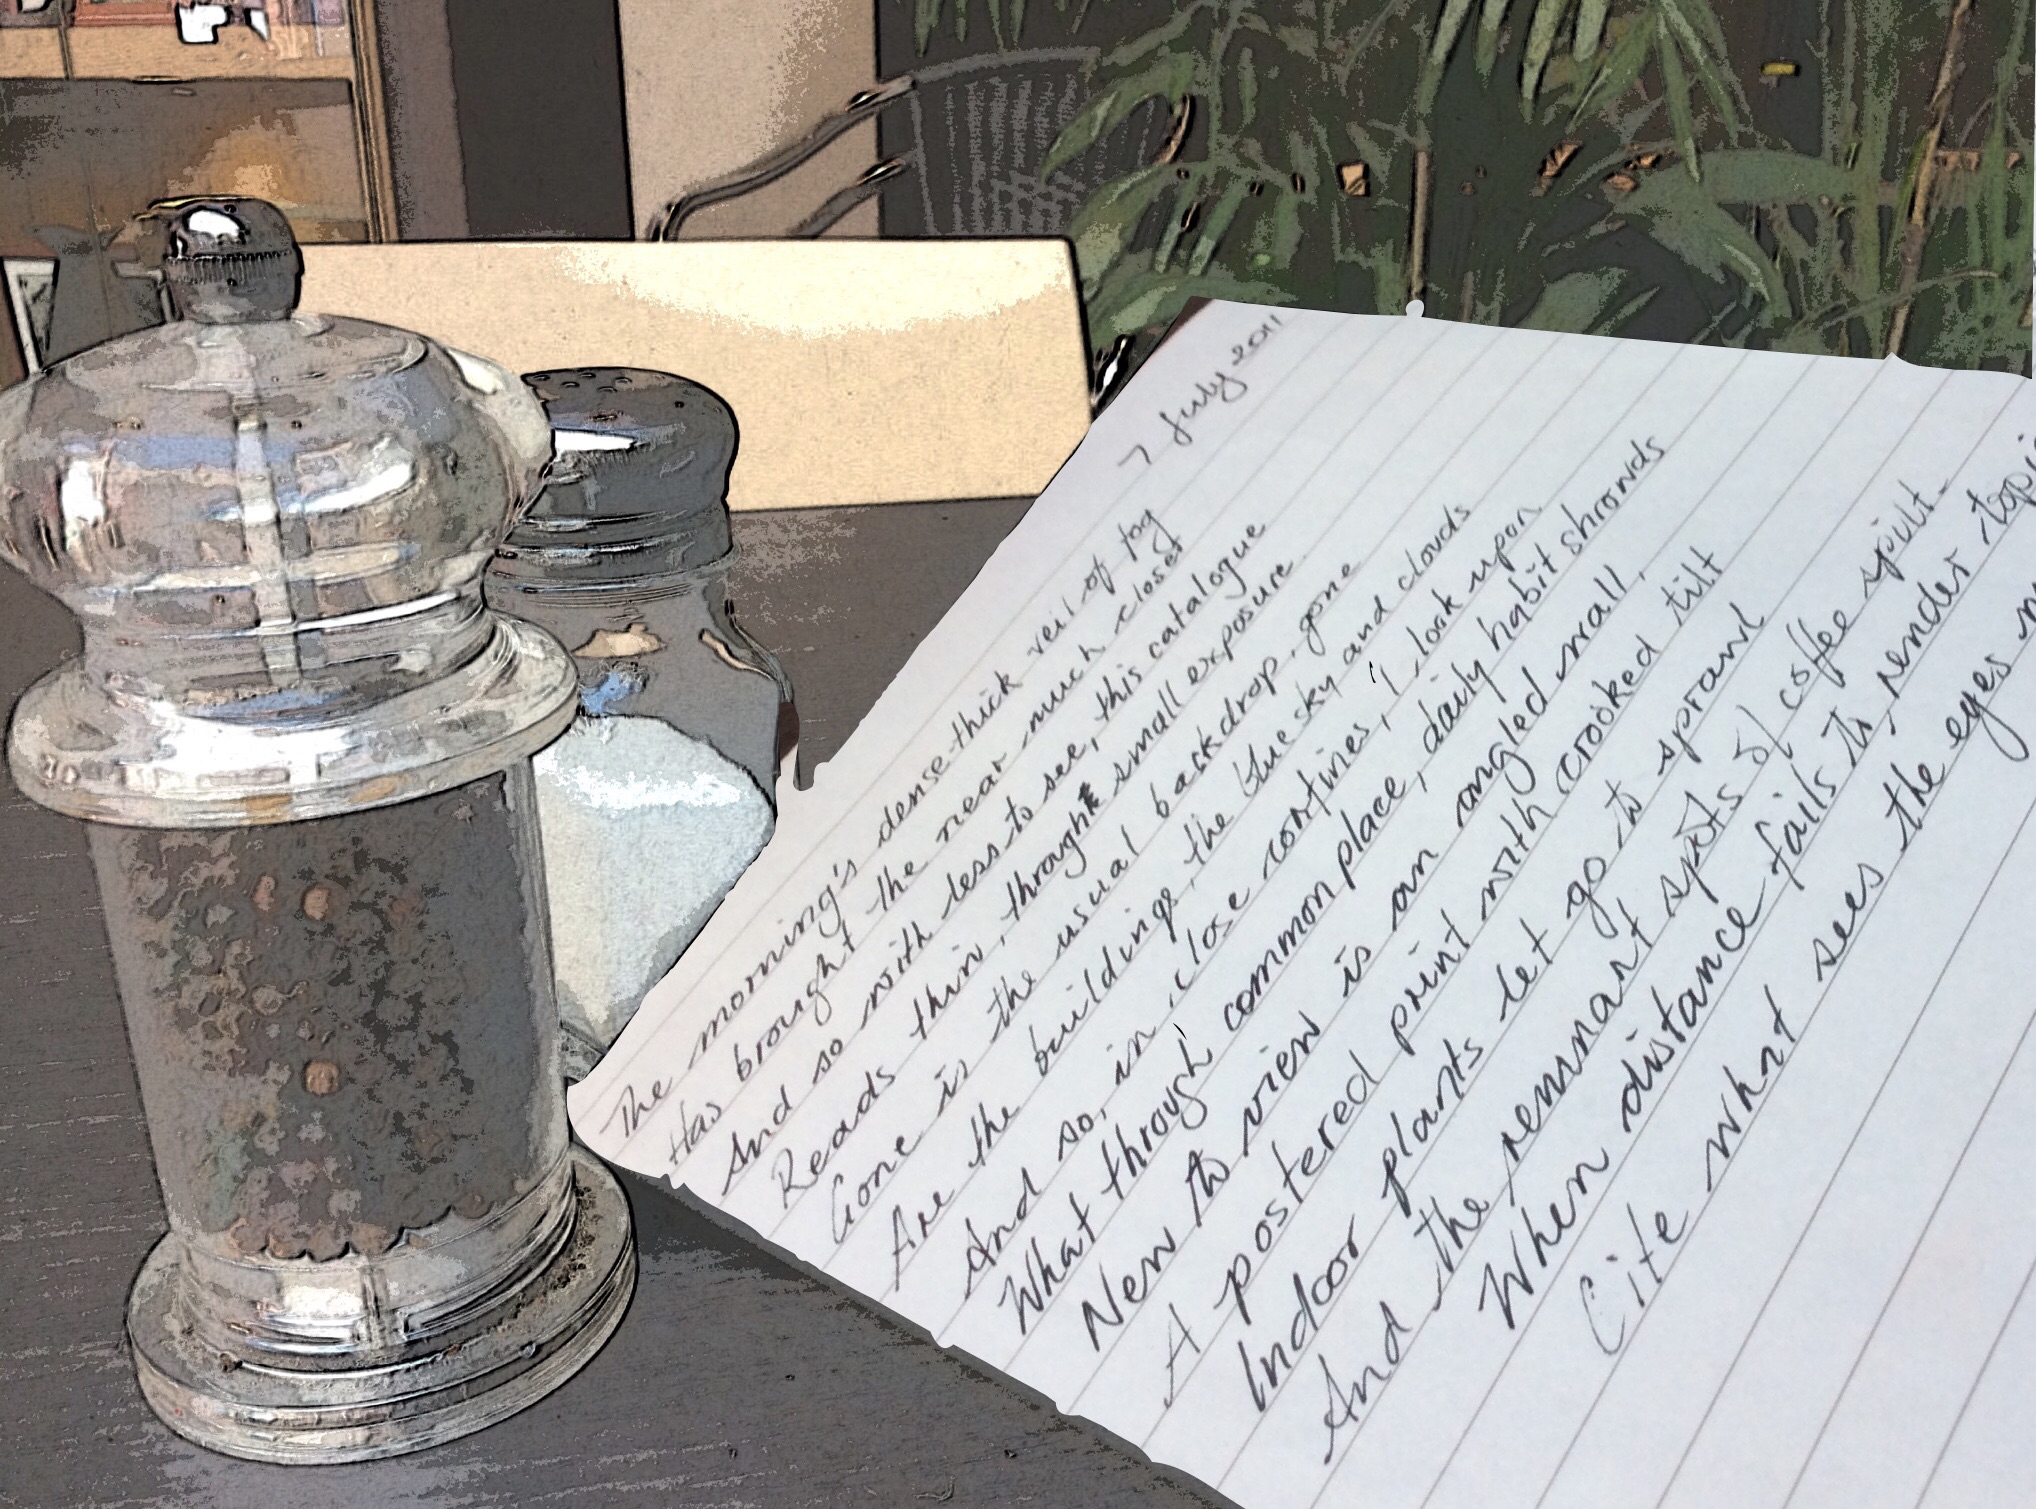 7 July 2011
The morning's dense-thick veil of fog
Has brought the near much closer
And so with less to see, this catalogue
Reads thin, through small exposure
Gone is the usual backdrop, gone
Are the buildings, the blue sky and clouds
And so, in close confines, I look upon
What through common place, daily habit shrouds
New to view is an angled wall,
A postered print with crooked tilt
Indoor plants let go to sprawl
And the remnant spots of coffee spilt-
When distance fails to render
Cite what sees the eyes